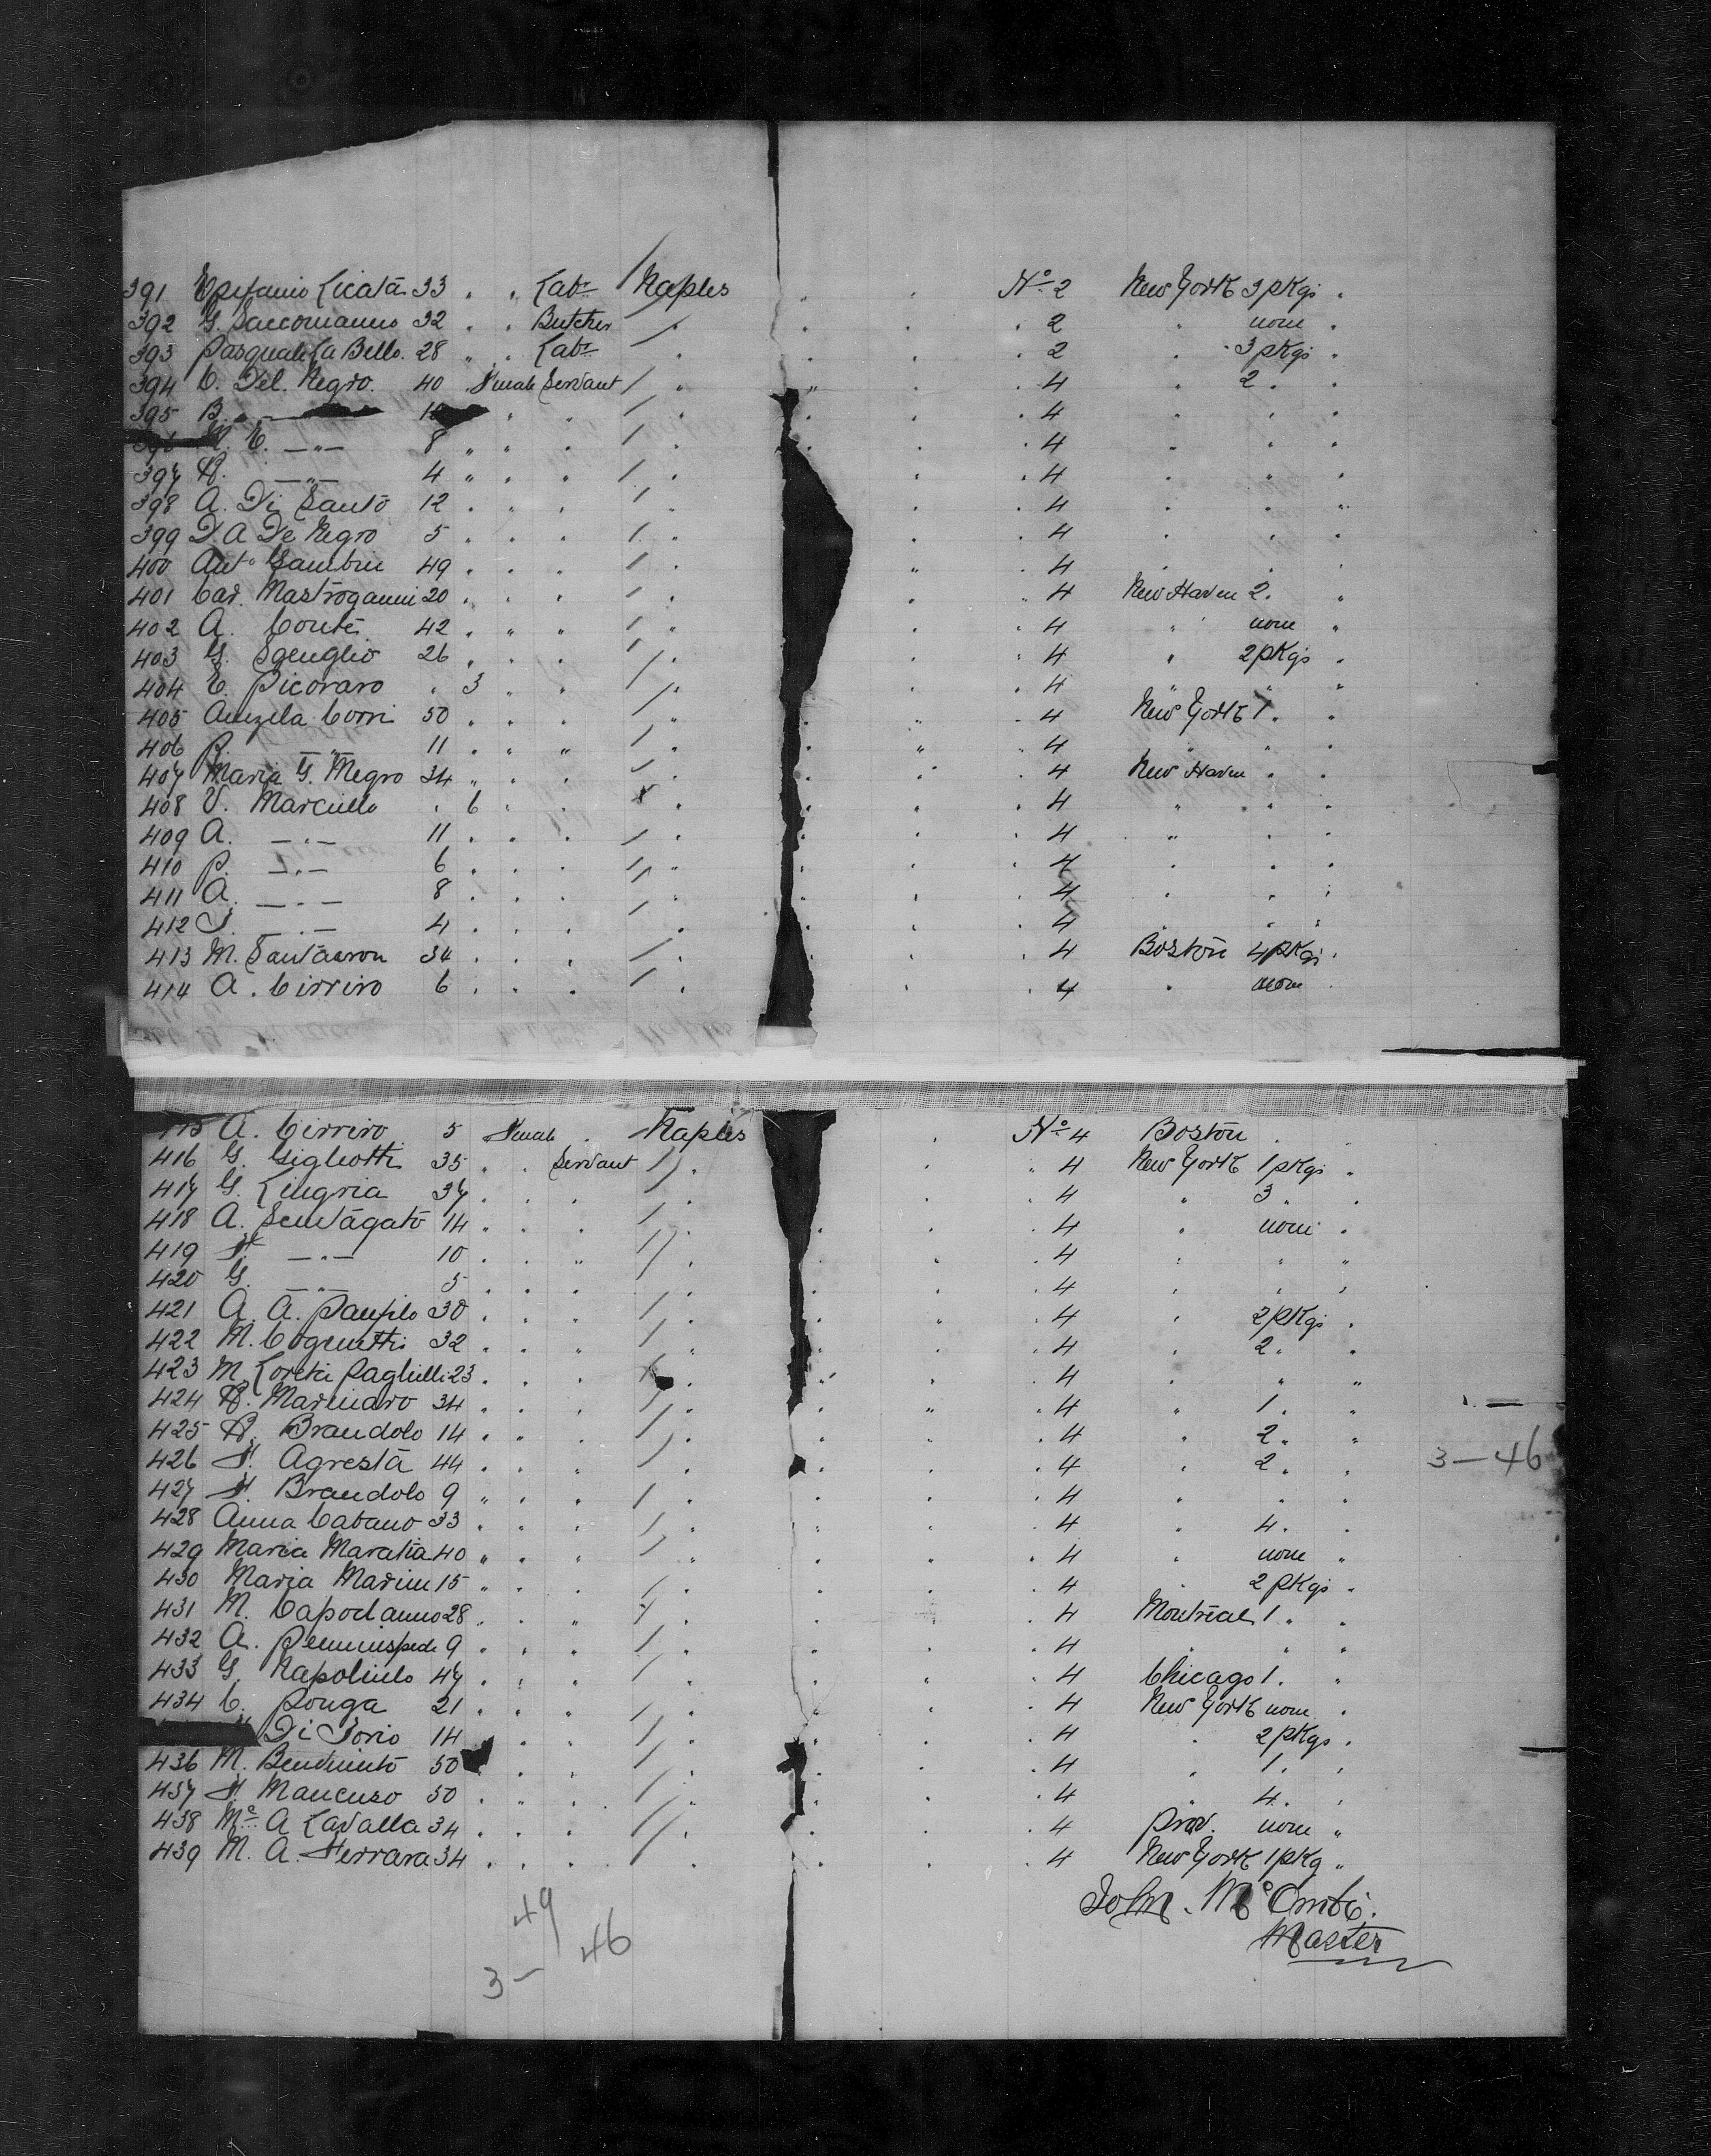 391 Epifanio Licata 33 " " Labr / Naples " " No 2 New York 3 pkgs "
392 G. Saccomanno 32 " " Butcher / " " " " 2 " none "
393 Pasquale La Bello. 28 " " Labr / " " " " 2 " 3 pkgs "
394 C. Del. Negro. 40 Female Servant / " " " " 4 " 2 " "
395 B. " " " / " " " " 4 " " "
E. — " — 8 " " " / " " " " 4 " " "
397 R. — " — 4 " " " / " " " 4 " " "
398 A. Di Santo 12 " " " / " " " 4 " " "
399 D. A De Negro 5 " " " / " " " 4 " " "
400 Anto Gambin 49 " " " / " " " 4 " " "
401 Car. Mastroganni 20 " " " / " " " 4 New Haven 2 " "
402 A. Conte 42 " " " / " " " 4 " none "
403 G. Sgenglio 26 " " " / " " " 4 " 2 pkgs "
404 E. Picoraro " 3 " " / " " " 4 " " "
405 Angela Corri 50 " " " / " " " " 4 New York 1 " "
406 P. — " — 11 " " " / " " " " 4 " " "
407 Maria G. Megro 34 " " " / " " " " 4 New Haven " "
408 V. Marciello " 6 " " X " " " " 4 " " "
409 A. — " — 11 " " " / " " " " 4 " " "
410 P. — " — 6 " " " / " " " " 4 " " "
411 A. — " — 8 " " " / " " " " 4 " " "
412 — " — 4 " " " / " " " " 4 " " "
413 M. Santacron 34 " " " / " " " 4 Boston 4 pkgs "
414 A. Cirriro 6 " " " / " " " 4 " none "
A. Cirriro 5 Female " Naples " No 4 Boston " "
416 G. Gigliotti 35 " " Servant / " " " 4 New York 1 pkgs "
417 G. Lingria 37 " " " / " " " 4 " 3 " "
418 A. Sentagato 14 " " " / " " " " 4 " none "
419 F. — " — 10 " " " / " " " " 4 " " "
420 G. — " — 5 " " " / " " " " 4 " " "
421 A. A. Panfilo 30 " " " / " " " " 4 " 2 pkgs "
422 M. Cogenetti 32 " " " / " " " " 4 " 2 " "
423 M. Loreta Paglielli 23 " " " X " " " " 4 " " "
424 R. Marinaro 34 " " " / " " " " 4 " 1 " "
425 R. Brandolo 14 " " " / " " " " 4 " 2 " "
426 F. Agresta 44 " " " / " " " " 4 " 2 " " 3 — 46
427 F. Brandolo 9 " " " / " " " " 4 " " "
428 Anna Catano 33 " " " / " " " " 4 " 4 " "
429 Maria Maratia 40 " " " / " " " " 4 " none "
430 Maria Marini 15 " " " / " " " " 4 " 2 pkgs "
431 M. Capodanno 28 " " " / " " " " 4 Montreal 1 " "
432 A. Pennispede 9 " " " / " " " " 4 " " "
433 G. Napolielo 47 " " " / " " " " 4 Chicago 1 " "
434 C. Ponga 21 " " " / " " " " 4 New York none "
Di Iorio 14 " " " / " " " " 4 " 2 pkgs "
436 M. Benvenuto 50 " " " / " " " 4 " 1 " "
437 F. Mancuso 50 " " " / " " " " 4 " 4 " "
438 Ma A Lavalla 34 " " " / " " " " 4 Prov. none "
439 M. A. Ferrara 34 " " " / " " " " 4 New York 1 pkg "
John. McOmbé.
Master
49
3 — 46